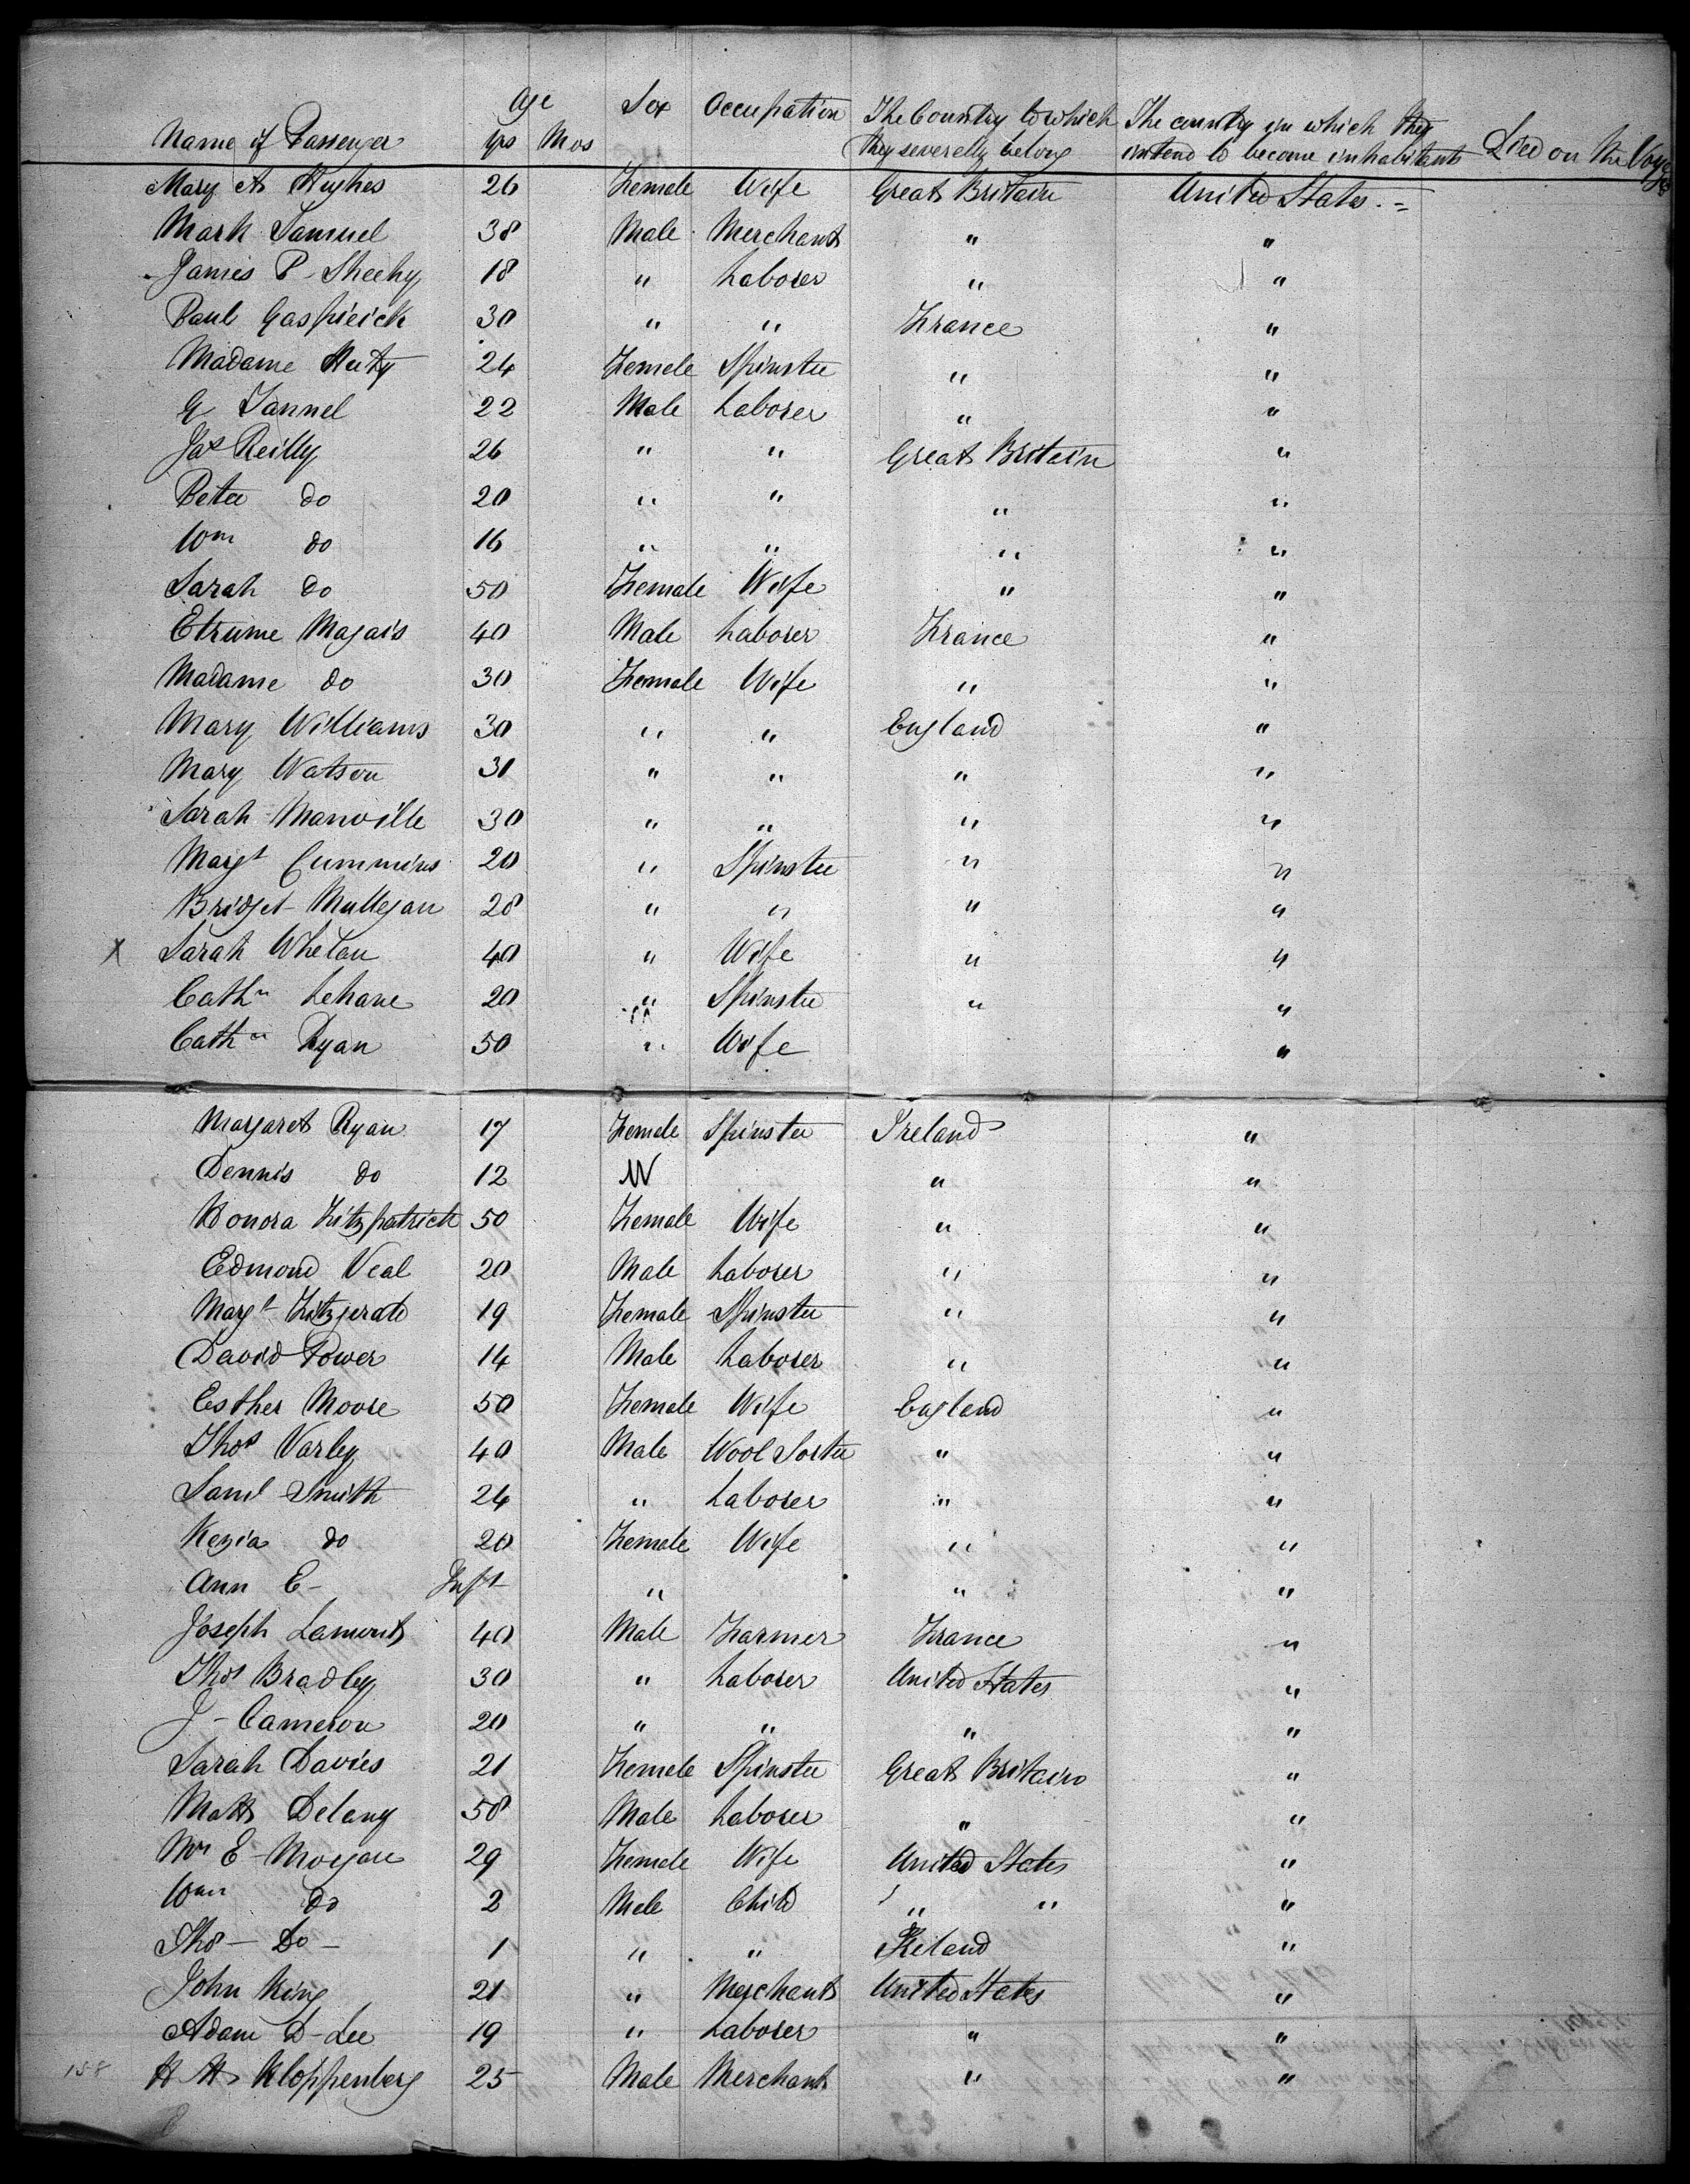 Name of Passenger Age yrs Mos Sex Occupation The Country to which they severelly belong The country in which they intend to become inhabitants Died on the Voyage
Mary A Hughes 26 Female Wife Great Britain United States
Mark Samuel 38 Male Merchant " "
James P Sheehy 18 " Laborer " "
Paul Gaspieick 30 " " France "
Madame 24 Female Spinster " "
G 22 Male Laborer " "
Jas Reilly 26 " " Great Britain "
Peter do 20 " " " "
Wm do 16 " " " "
Sarah do 50 Female Wife " "
Etrume Magais 40 Male Laborer France "
Madame do 30 Female Wife " "
Mary Williams 30 " " England "
Mary Watson 31 " " " "
Sarah Manville 30 " " " "
Margt Cummins 20 " Spinster " "
Bridget Mullegan 28 " " " "
X Sarah Whelan 40 " Wife " "
Cathn Lehane 20 " Spinster " "
Cathn Ryan 50 " Wife "
Margaret Ryan 17 Female Spinster Ireland "
Dennis do 12 M " "
Honora Fitzpatrick 50 Female Wife " "
Edmond Veal 20 Male Laborer " "
Margt Fitzgerald 19 Female Spinster " "
David Power 14 Male Laborer " "
Esther Moore 50 Female Wife England "
Thos Varley 40 Male Wool Sorter " "
Saml Smith 24 " Laborer " "
Kezia do 20 Female Wife " "
Ann E - Inft " " "
Joseph Lamont 40 Male Farmer France "
Thos Bradley 30 " Laborer United States "
J - Cameron 20 " " " "
Sarah Davies 21 Female Spinster Great Britain "
Matt Delany 58 Male Laborer " "
Mrs E - Morgan 29 Female Wife United States "
Wm do 2 Male Child " " "
Thos - Do - 1 " " Ireland "
John King 21 " Merchant United States "
Adam D - Lee 19 " Laborer " "
158 H H Kloppenberg 25 Male Merchant " "